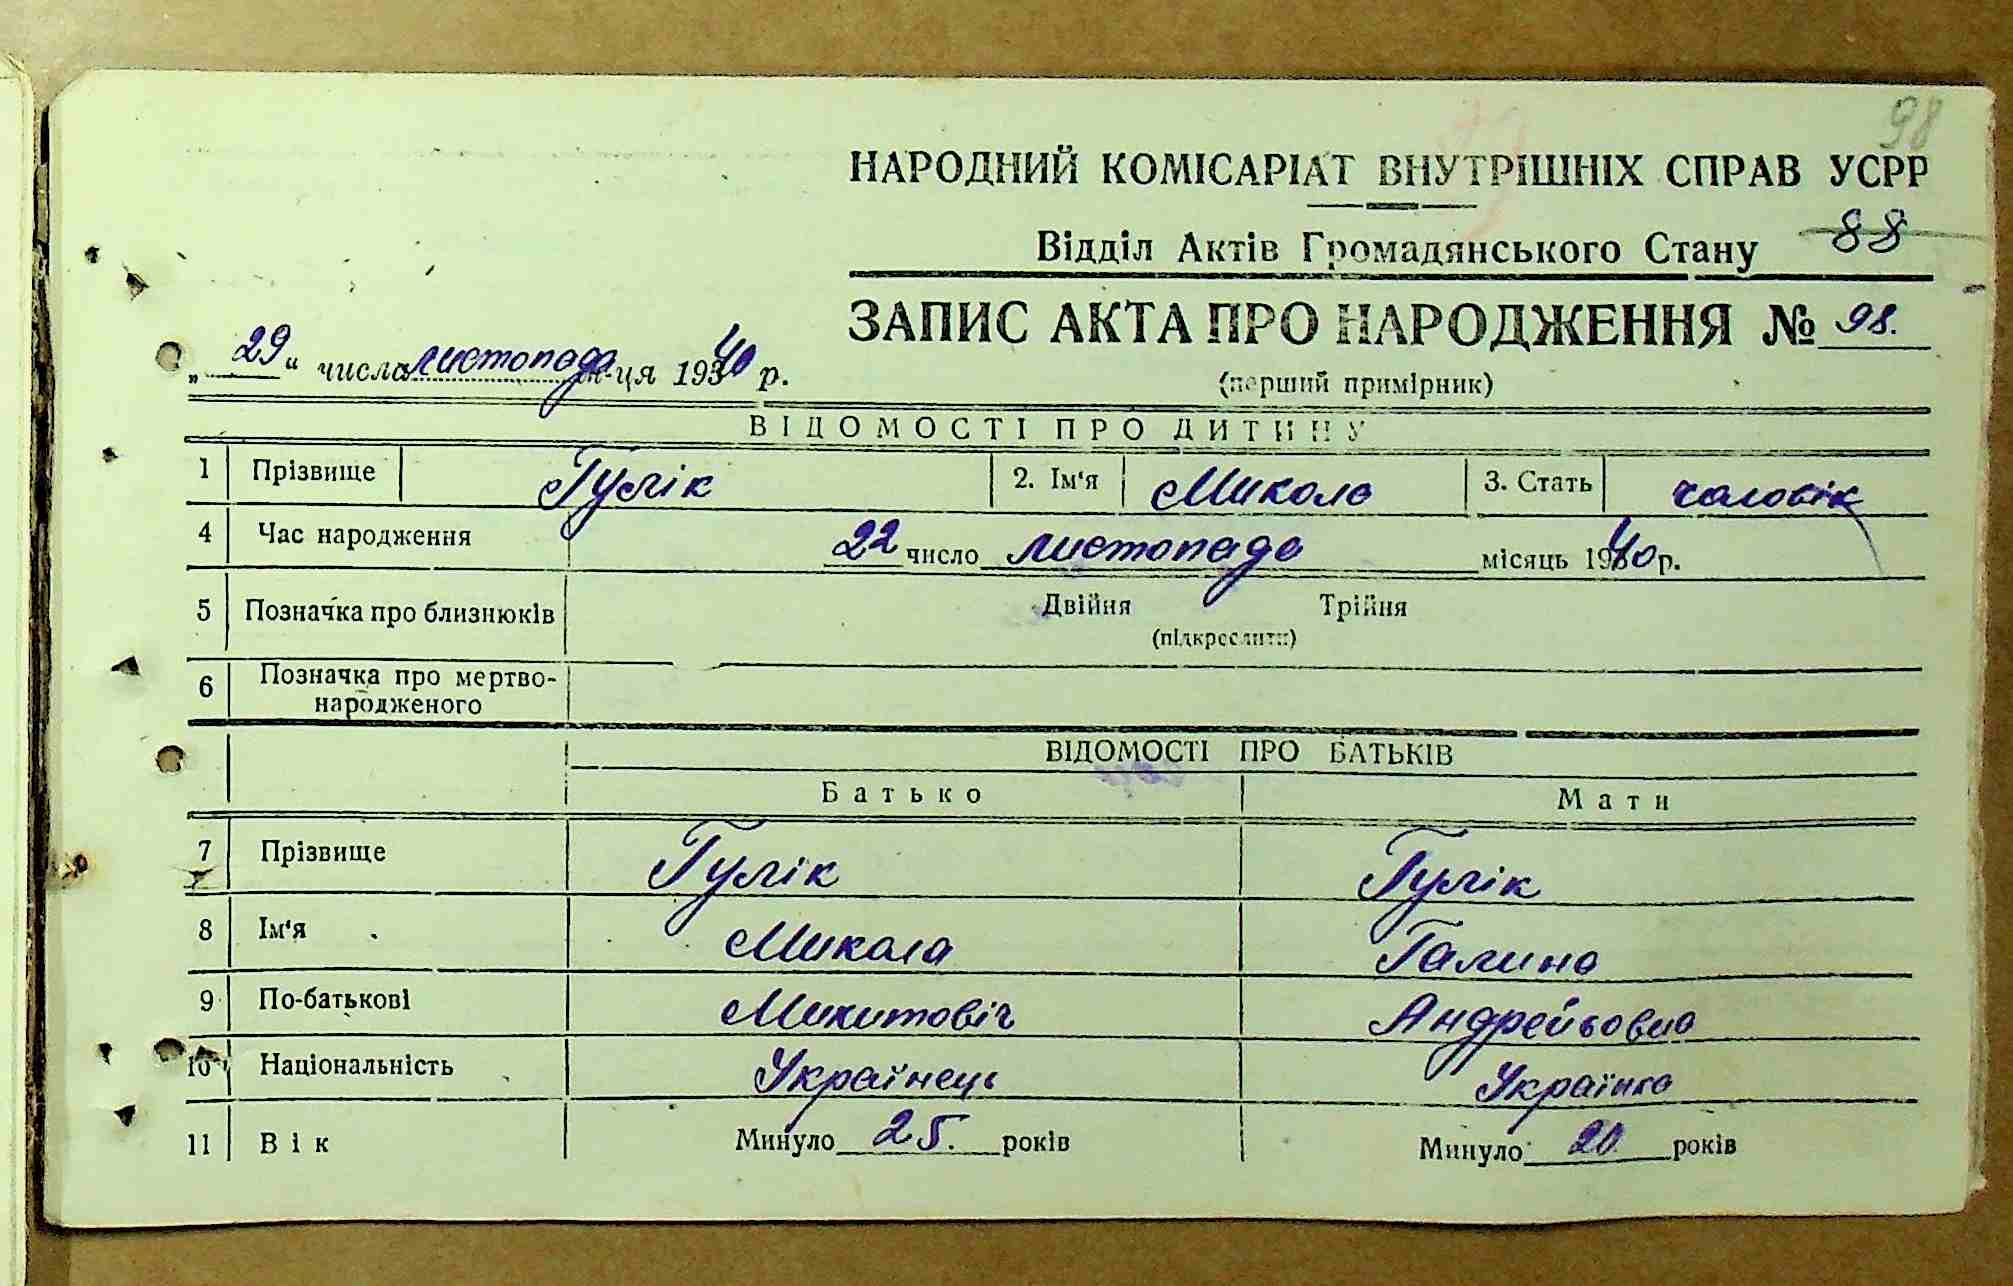 98
НАРОДНИЙ КОМІСАРІАТ ВНУТРІШНІХ СПРАВ УСРР
Відділ Актів Громадянського Стану 88
ЗАПИС АКТА ПРО НАРОДЖЕННЯ № 98.
„29“ числа листопада м-ця 1940 р.
(перший примірник)
ВІДОМОСТІ ПРО ДИТИНУ
1 Прізвище Гулік 2. Ім'я Микола 3. Стать чоловік
4 Час народження 22 число листопада місяць 1940 р.
5 Позначка про близнюків Двійня Трійня
(підкреслити)
6 Позначка про мертво-
народженого
ВІДОМОСТІ ПРО БАТЬКІВ
Батько Мати
7 Прізвище Гулік Гулік
8 Ім'я Микола Галина
9 По-батькові Микитовіч Андрейовна
10 Національність Українець Українка
11 Вік Минуло 25. років Минуло 20 років